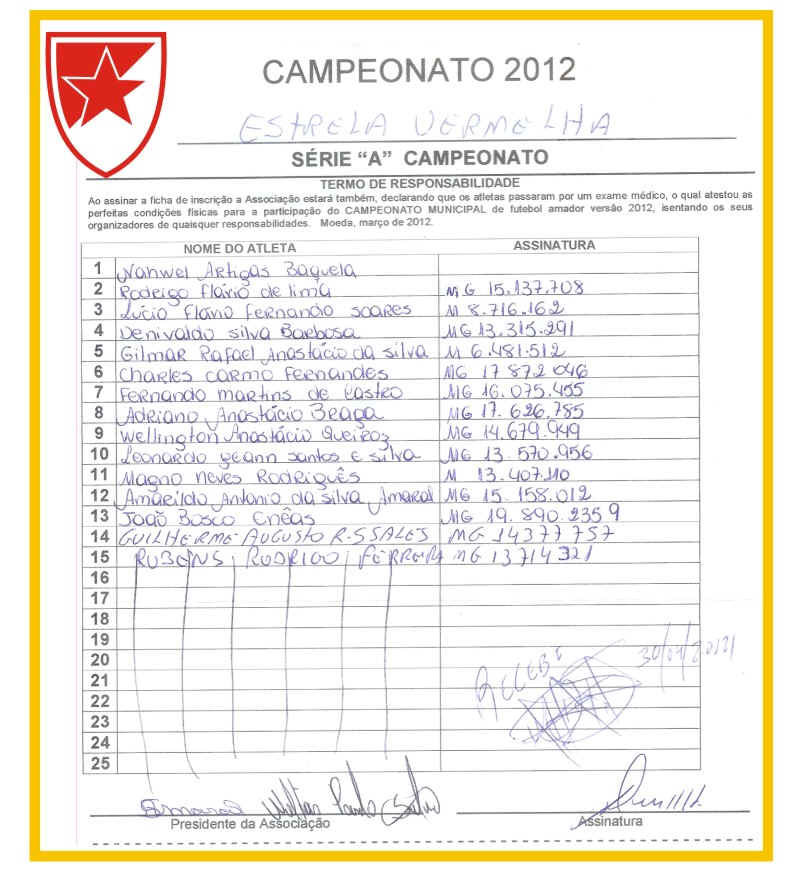 CAMPEONATO 2012
ESTRELA VERMELHA
SÉRIE “A” CAMPEONATO
TERMO DE RESPONSABILIDADE
Ao assinar a ficha de inscrição a Associação estará também, declarando que os atletas passaram por um exame médico, o qual atestou as
perfeitas condições físicas para a participação do CAMPEONATO MUNICIPAL de futebol amador versão 2012, isentando os seus
organizadores de quaisquer responsabilidades. Moeda, março de 2012.
NOME DO ATLETA ASSINATURA
1 Nahwel Artigas Baquela
2 Rodrigo Flávio de lima MG 15.137.708
3 Lúcio Flávio Fernando soares M 8.716.162
4 Denivaldo silva Barbosa MG 13.315.291
5 Gilmar Rafael Anastácio da silva M 6.481.512
6 Charles carmo Fernandes MG 17 872 046
7 Fernando martins de Castro MG 16.075.455
8 Adriano Anastácio Braga MG 17.626.785
9 Wellington Anastácio Queiroz MG 14.679.949
10 Leonardo yeann santos e silva MG 13.570.956
11 Magno Neves Rodrigues M 13.407.110
12 Amarildo Antonio da silva Amaral MG 15.158.012
13 João Bosco Enêas MG 19.890.2359
14 GUILHERME AUGUSTO R.S SALES MG 14377757
15 RUBENS RODRIGO FERREIRA MG 13714321
16
17
18
19
20
RECEBI 30/04/2012
21
22
23
24
25
Presidente da Associação Assinatura